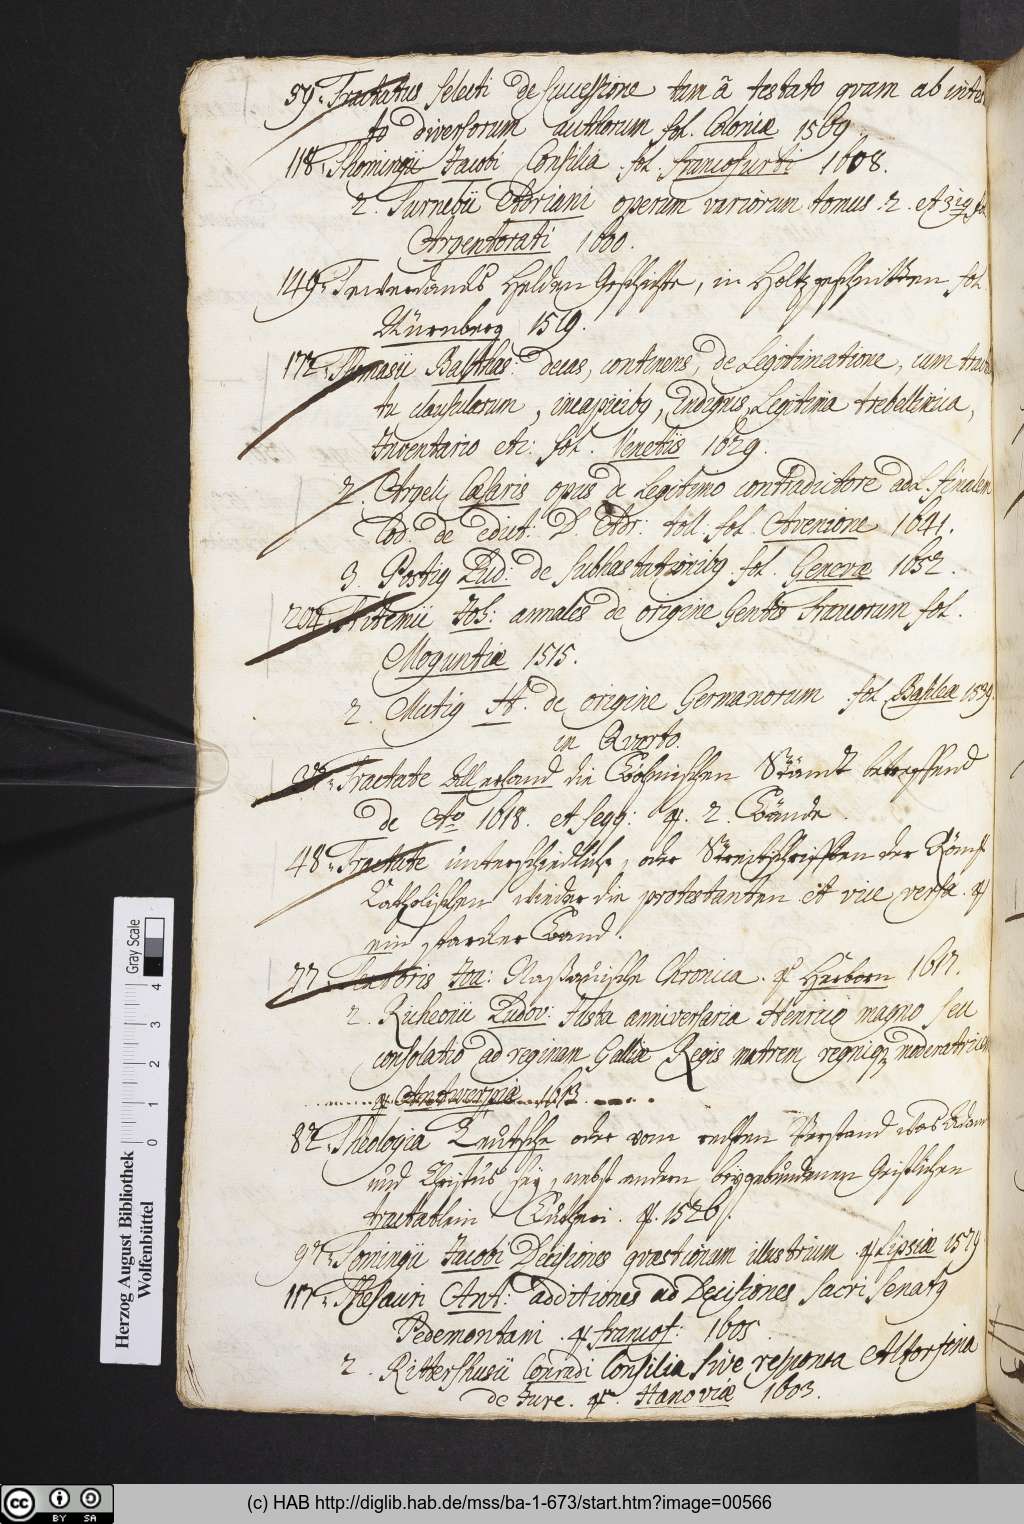 59. Tractatus selecti de Successione tam â testato quam ab intes
to diversorum authorum fol. Coloniæ 1569
118. Thomingii Jacobi Consilia fol. francofurti 1608.
2. Turnebii Adriani operum variorum tomus 2. et 3 fol
Argentorati 1600.
149. Tewerdancks Helden Geschichte, in Holtz geschnitten fol
Nürnberg 1519.
172. Thomasii Balthas: decas, continens, de Legitimatione, cum
tu clausularum, incapacibq, indignis, Legitima trebellinica,
Inventario etc: fol. Venetiis 1629.
2. Argeli Cæsaris opus de Legitimo contradictore ad L. finalem
Cod. de edict: D. Adr: toll. fol. Avenione 1641.
3. Postig Lud: de subhastationibq. fol. Genevæ 1652.
204. Tritemii Joh: annales de origine Gentis francorum fol.
Moguntiæ 1515.
2. Mutig H. de origine Germanorum fol. Basileæ 1539
in Quarto.
Tractate allerhand die Böhmischen Stände betreffend
de Ao 1618. et seqq: q. 2. Bände.
48. Tractate unterschiedliche, oder Streitschrifften der Röm.
Catholischen wieder die protestanten et vice versa. q
ein starcker Band.
77. Textoris Joa: Naßauische Chronica. q Herborn 1617.
2. Richeonii Ludov: Justa anniversaria Henrico magno seu
consolatio ad reginam Galliæ Regis matrem regniq moderatricem
q. Antwerpiæ 1613.
82. Theologia Teutsche oder vom rechten Verstand was Adam
und Christus sey, nebst andern beygebundenen Geistlichen
tractatlein Lutheri. q. 1526.
97. Tomingii Jacobi Decisiones quæstionum illustrium q Lipsiæ 1579
117. Thesauri Ant: additiones ad Decisiones Sacri Senatq
Pedemontani. q francof: 1605.
2. Rittershusii Conradi Consilia sive responsa Altorfina
de Jure. q. Hanoviæ 1603.
Gray Scale
0 1 2 3 4
Herzog August Bibliothek
Wolfenbüttel
cc BY SA
(c) HAB http://diglib.hab.de/mss/ba-1-673/start.htm?image=00566